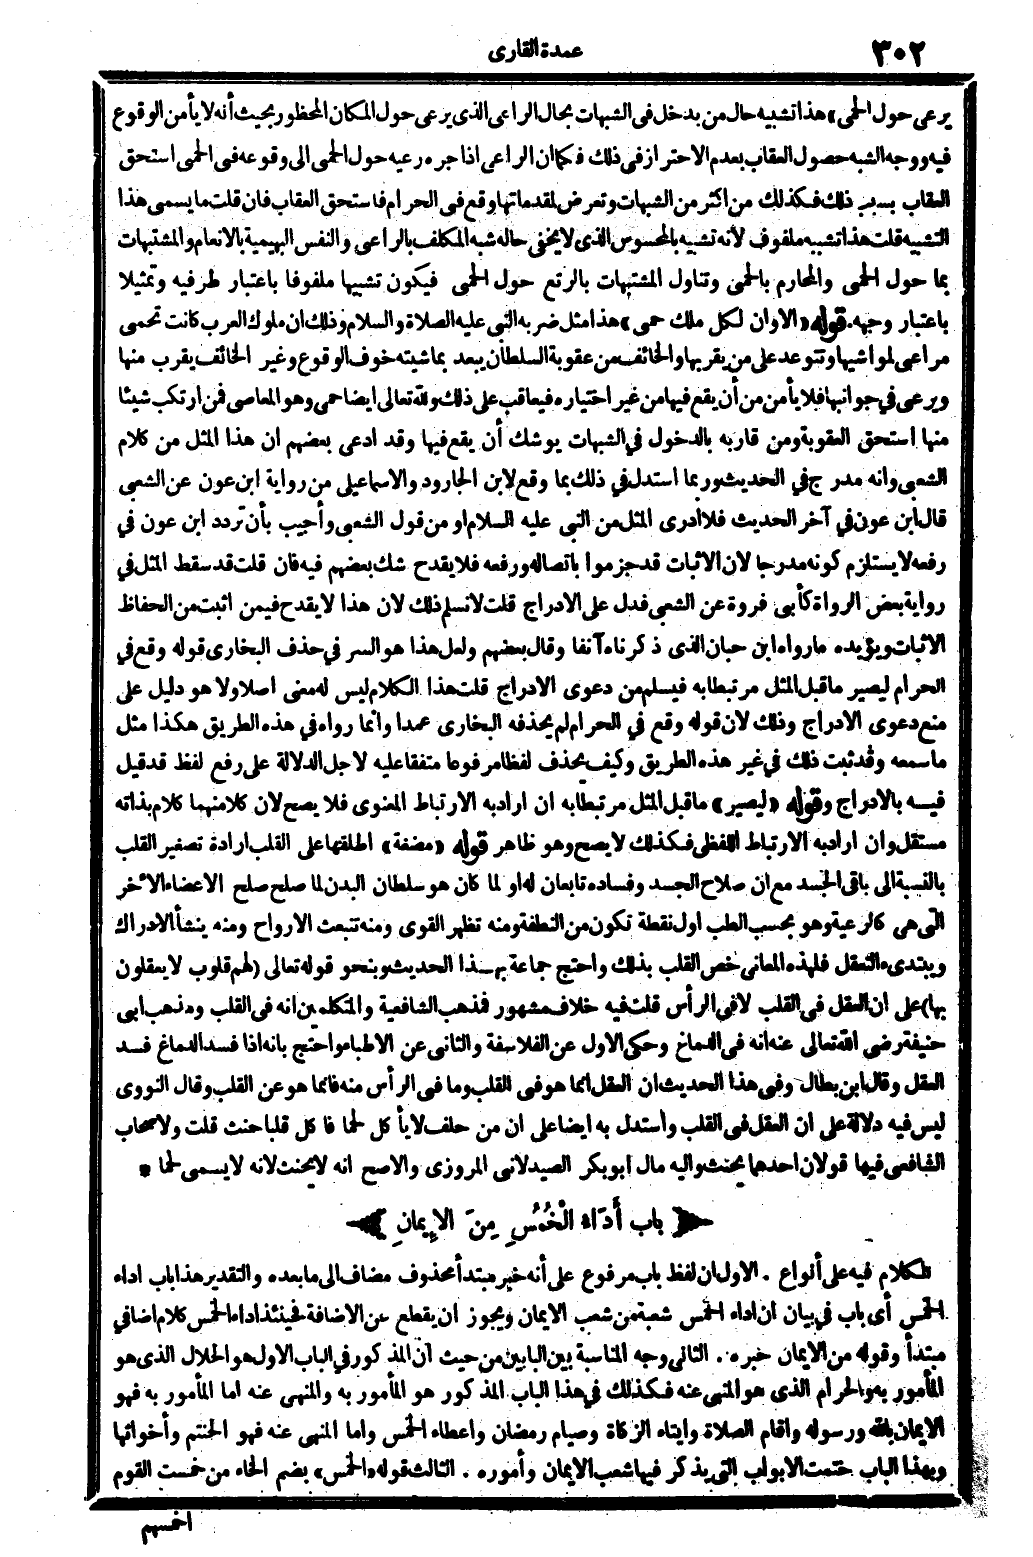 ٣٠٢
عمدة القارى
يرعى حول الحمى» هذا تشبيه حال من يدخل فى الشبهات بحال الراعى الذى يرعى حول المكان المحظور بحيث أنه لا يأمن الوقوع
فيه ووجه الشبه حصول العقاب بعدم الاحتراز فى ذلك فكما ان الراعى اذا جره رعيه حول الحمى الى وقوعه فى الحمى استحق
العقاب بسبب ذلك فكذلك من اكثر من الشبهات وتعرض لمقدماتها وقع فى الحرام فاستحق العقاب فان قلت ما يسمى هذا
التشبيه قلت هذا تشبيه ملفوف لأنه تشبيه بالمحسوس الذى لا يخفى حاله شبه المكلف بالراعى والنفس البهيمية بالانعام والمشتبهات
بما حول الحمى والمحارم بالحمى وتناول المشتبهات بالرتع حول الحمى فيكون تشبيها ملفوفا باعتبار طرفيه وتمثيلا
باعتبار وجهه. قوله «الا وان لكل ملك حمى» هذا مثل ضربه النبى عليه الصلاة والسلام وذلك ان ملوك العرب كانت تحمى
مراعى لمواشيها وتتوعد على من يقربها والخائف من عقوبة السلطان يبعد بماشيته خوف الوقوع وغير الخائف يقرب منها
ويرعى في جوانبها فلا يأمن من أن يقع فيها من غير اختياره فيعاقب على ذلك ولله تعالى ايضا حمى وهو المعاصى فمن ارتكب شيئا
منها استحق العقوبة ومن قاربه بالدخول في الشبهات يوشك أن يقع فيها وقد ادعى بعضهم ان هذا المثل من كلام
الشعبى وانه مدرج في الحديث وربما استدل في ذلك بما وقع لابن الجارود والاسماعيلى من رواية ابن عون عن الشعبى
قال ابن عون في آخر الحديث فلا ادرى المثل من النبى عليه السلام او من قول الشعبى وأجيب بأن تردد ابن عون في
رفعه لا يستلزم كونه مدرجا لان الاثبات قد جزموا باتصاله ورفعه فلا يقدح شك بعضهم فيه فان قلت قد سقط المثل في
رواية بعض الرواة كأبى فروة عن الشعبى فدل على الادراج قلت لا نسلم ذلك لان هذا لا يقدح فيمن اثبت من الحفاظ
الاثبات ويؤيده ما رواه ابن حبان الذى ذكرناه آنفا وقال بعضهم ولعل هذا هو السر في حذف البخارى قوله وقع في
الحرام ليصير ما قبل المثل مرتبطا به فيسلم من دعوى الادراج قلت هذا الكلام ليس له معنى اصلا ولا هو دليل على
منع دعوى الادراج وذلك لان قوله وقع في الحرام لم يحذفه البخارى عمدا وانما رواه في هذه الطريق هكذا مثل
ما سمعه وقد ثبت ذلك في غير هذه الطريق وكيف يحذف لفظا مرفوعا متفقا عليه لاجل الدلالة على رفع لفظ قد قيل
فيه بالادراج وقوله «ليصير» ما قبل المثل مرتبطا به ان اراد به الارتباط المعنوى فلا يصح لان كلا منهما كلام بذاته
مستقل وان اراد به الارتباط اللفظى فكذلك لا يصح وهو ظاهر قوله «مضغة» اطلقها على القلب ارادة تصغير القلب
بالنسبة الى باقى الجسد مع ان صلاح الجسد وفساده تابعان له او لما كان هو سلطان البدن لما صلح صلح الاعضاء الأخر
التى هى كالرعية وهو بحسب الطب اول نقطة تكون من النطفة ومنه تظهر القوى ومنه تنبعث الارواح ومنه ينشأ الادراك
ويبتدىء التعقل فلهذه المعانى خص القلب بذلك واحتج جماعة بهذا الحديث وبنحو قوله تعالى (لهم قلوب لا يعقلون
بها) على ان العقل فى القلب لا في الرأس قلت فيه خلاف مشهور فمذهب الشافعية والمتكلمين انه فى القلب ومذهب ابى
حنيفة رضى الله تعالى عنه انه فى الدماغ وحكى الاول عن الفلاسفة والثانى عن الاطباء واحتج بانه اذا فسد الدماغ فسد
العقل وقال ابن بطال وفى هذا الحديث ان العقل انما هو فى القلب وما فى الرأس منه فانما هو عن القلب وقال النووى
ليس فيه دلالة على ان العقل فى القلب واستدل به ايضا على ان من حلف لا يأكل لحما فاكل قلبا حنث قلت ولاصحاب
الشافعى فيها قولان احدهما يحنث واليه مال ابو بكر الصيدلانى المروزى والاصح انه لا يحنث لانه لا يسمى لحما *
باب أَدَاءُ الْخُمُسِ مِنَ الإِيمَانِ
الكلام فيه على أنواع . الاول ان لفظ باب مرفوع على أنه خبر مبتدأ محذوف مضاف الى ما بعده والتقدير هذا باب اداء
الخمس أى باب في بيان ان اداء الخمس شعبة من شعب الايمان ويجوز ان يقطع عن الاضافة فحينئذ اداء الخمس كلام اضافي
مبتدأ وقوله من الايمان خبره . الثانى وجه المناسبة بين البابين من حيث ان المذكور في الباب الاول هو الحلال الذى هو
المأمور به والحرام الذى هو المنهى عنه فكذلك في هذا الباب المذكور هو المأمور به والمنهى عنه اما المأمور به فهو
الايمان بالله ورسوله واقام الصلاة وايتاء الزكاة وصيام رمضان واعطاء الخمس واما المنهى عنه فهو الحنتم وأخواتها
وبهذا الباب ختمت الابواب التى يذكر فيها شعب الايمان وأموره . الثالث قوله «الخمس» بضم الخاء من خمست القوم
اخمسهم